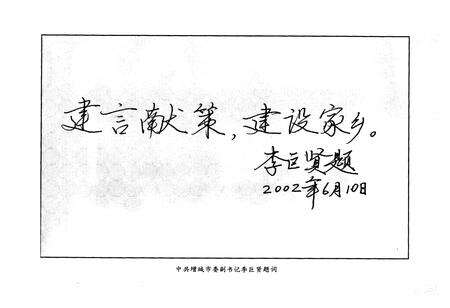 建言献策，建设家乡。
李巨贤题
2002年6月10日
中共增城市委副书记李巨贤题词